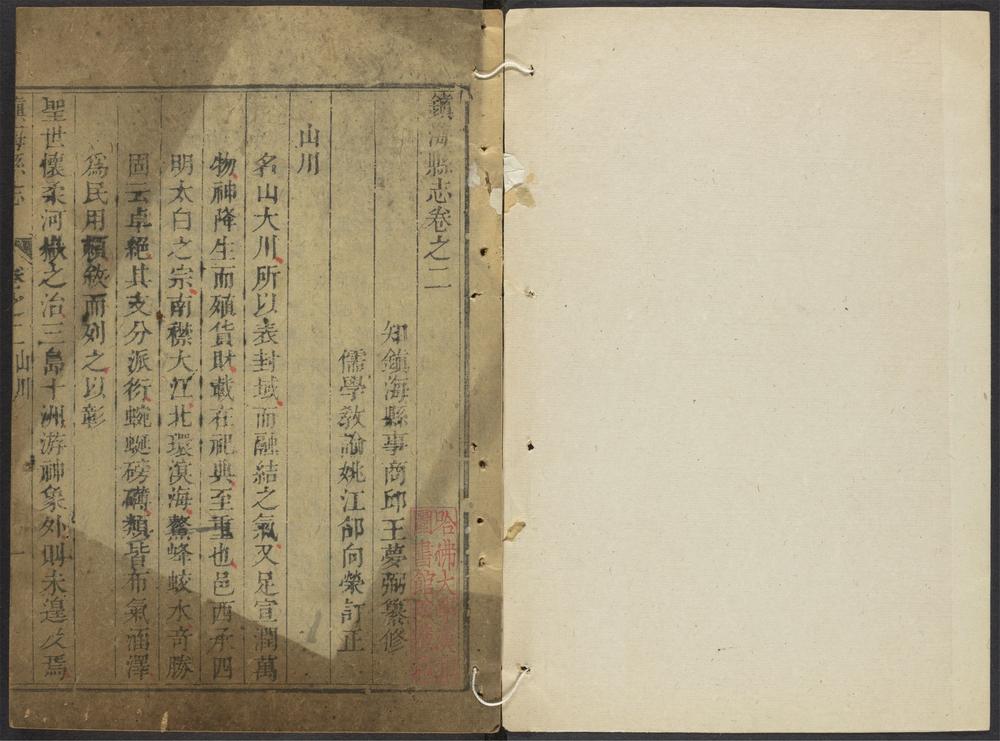 鎮海縣志卷之二
知鎮海縣事商邱王夢弼纂修
儒學教諭姚江邵向榮訂正
山川
名山大川所以表封域而融結之氣又足宣潤萬
物神降生而殖貨財載在祀典至重也邑西承四
明太白之宗南襟大江北環溟海鰲峰蛟水奇勝
固云卓絕其支分派衍蜿蜒磅礴類皆布氣涵澤
爲民用類敘而列之以彰
聖世懷柔河嶽之治三島十洲游神象外則未遑及焉
鎮海縣志 卷之二 山川 一
哈佛大學
圖書館